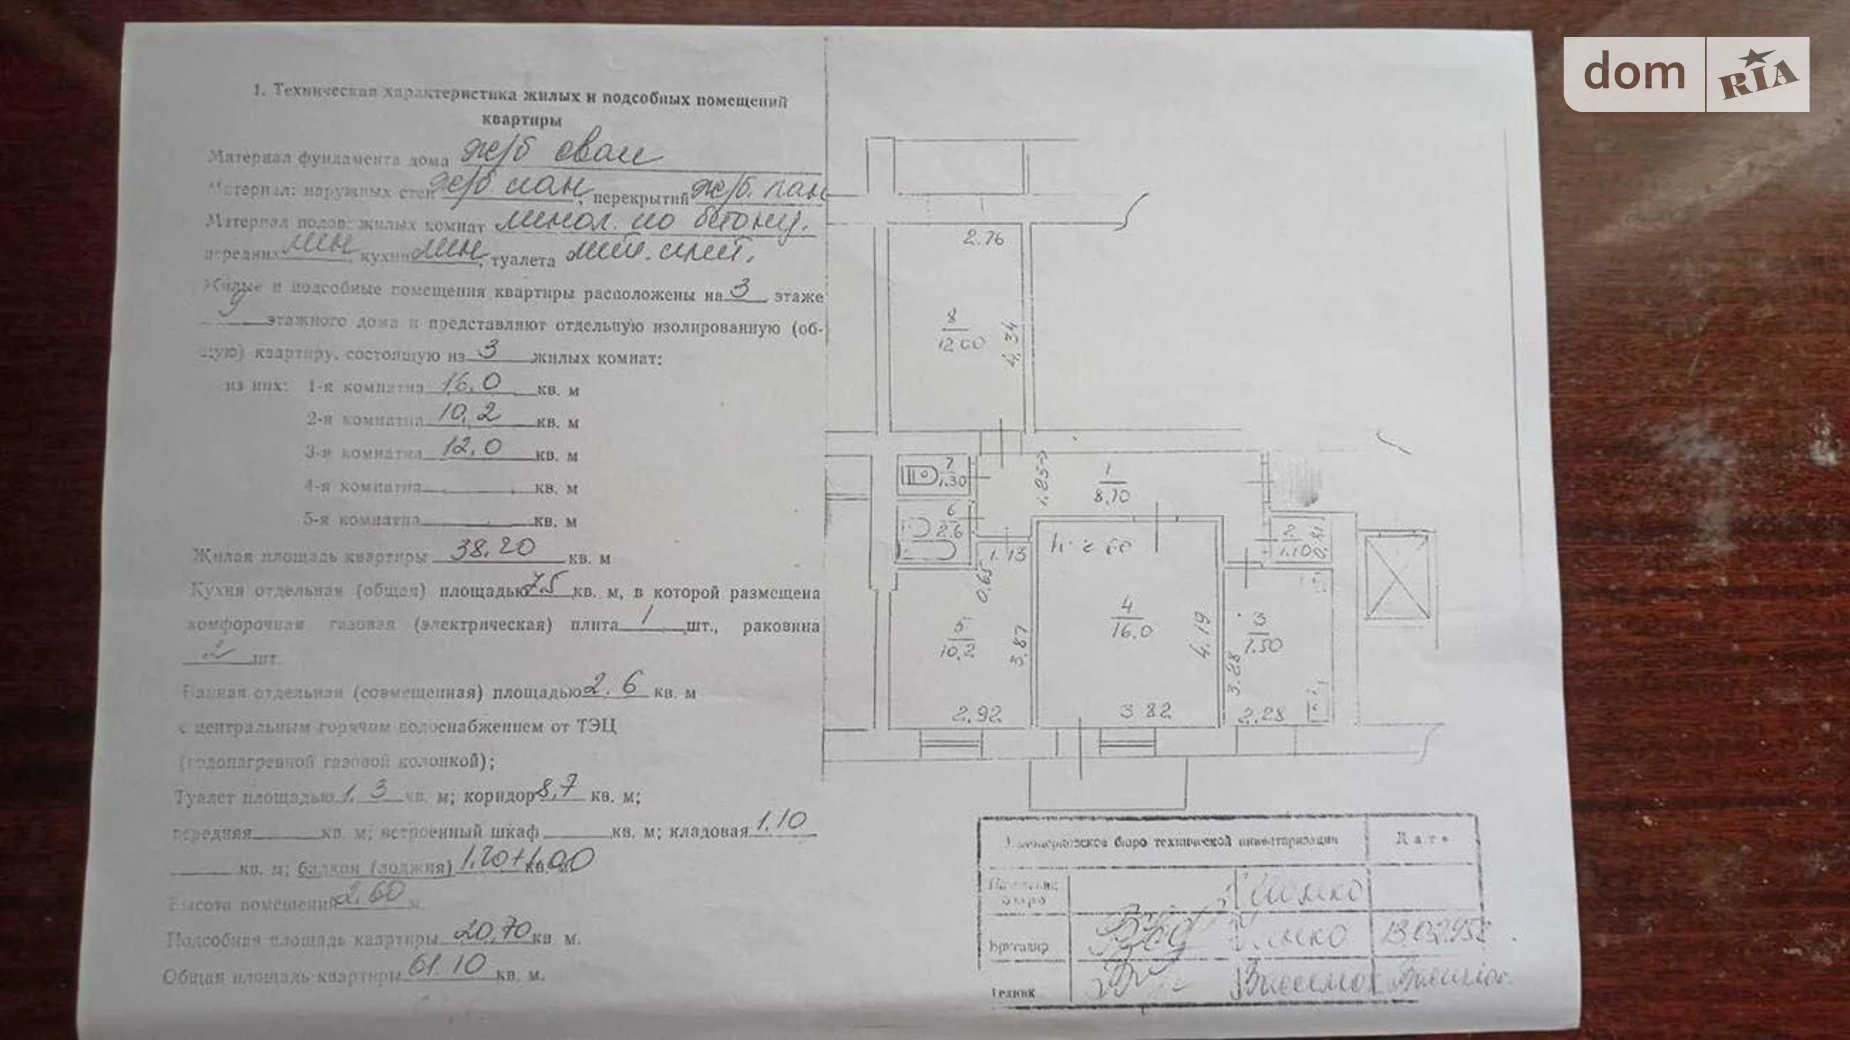 1. Техническая характеристика жилых и подсобных помещений
квартиры
Материал фундамента дома ж/б сваи
Материал: наружных стен ж/б. пан, перекрытий ж/б. пан
Материал полов: жилых комнат линол. по бетону.
передних лин, кухни лин, туалета
Жилые и подсобные помещения квартиры расположены на 3 этаже
9 этажного дома и представляют отдельную изолированную (об-
щую) квартиру, состоящую из 3 жилых комнат:
из них: 1-я комната 16,0 кв. м
2-я комната 10,2 кв. м
3-я комната 12,0 кв. м
4-я комната кв. м
5-я комната кв. м
Жилая площадь квартиры 38,20 кв. м
Кухня отдельная (общая) площадью 7.5 кв. м, в которой размещена
комфорочная газовая (электрическая) плита 1 шт., раковина
2 шт.
Ванная отдельная (совмещенная) площадью 2.6 кв. м
с центральным горячим водоснабжением от ТЭЦ
(водонагревной газовой колонкой);
Туалет площадью 1,3 кв. м; коридор 8,7 кв. м;
передняя кв. м; встроенный шкаф кв. м; кладовая 1.10
кв. м; балкон (лоджия) 1,20+1,00 кв. м
Высота помещений 2,60 м.
Подсобная площадь квартиры 20,70 кв. м.
Общая площадь квартиры 61.10 кв. м.
dom RIA
2.76
8
12.00
4.34
7
1.30
1.25
1
8,70
6
2.6
1.13
0.65
2
1.10
5
10,2
3,87
4
16.0
4,19
3
7.50
3.28
2,92
3.82
2,28
бюро технической инвентаризации Дата
бюро
Бригадир
Техник